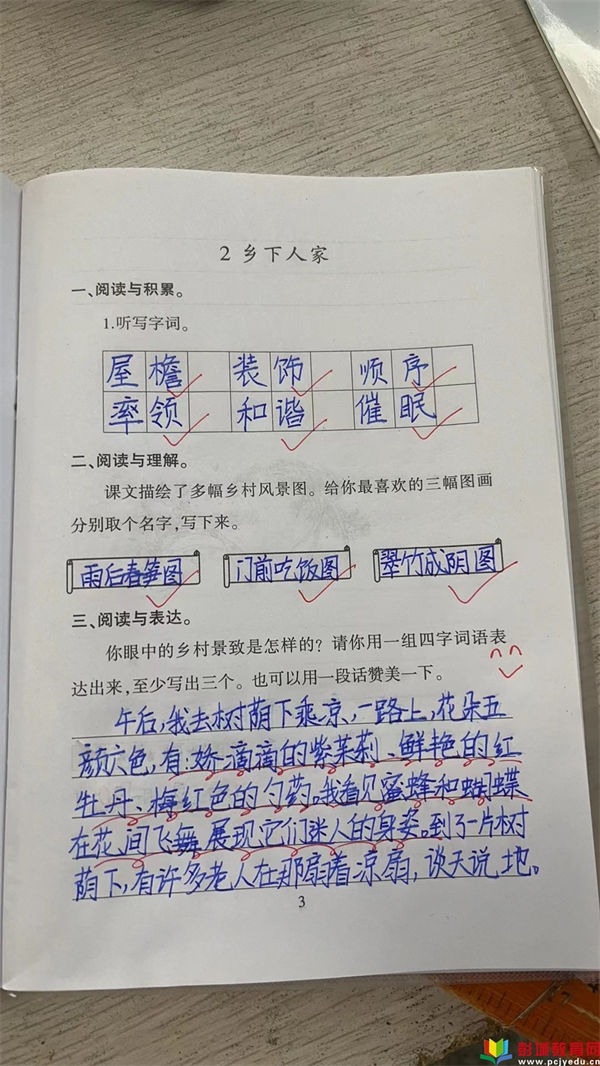 2 乡下人家
一、阅读与积累。
1.听写字词。
屋檐 装饰 顺序
率领 和谐 催眠
二、阅读与理解。
课文描绘了多幅乡村风景图。给你最喜欢的三幅图画
分别取个名字,写下来。
雨后春笋图 门前吃饭图 翠竹成阴图
三、阅读与表达。
你眼中的乡村景致是怎样的？请你用一组四字词语表
达出来,至少写出三个。也可以用一段话赞美一下。
午后,我去树荫下乘凉,一路上,花朵五
颜六色,有:娇滴滴的紫茉莉、鲜艳的红
牡丹、梅红色的勺药。我看见蜜蜂和蝴蝶
在花间飞舞展现它们迷人的身姿。到了一片树
荫下,有许多老人在那扇着凉扇,谈天说地。
3
彭城教育网
www.pcjyedu.cn